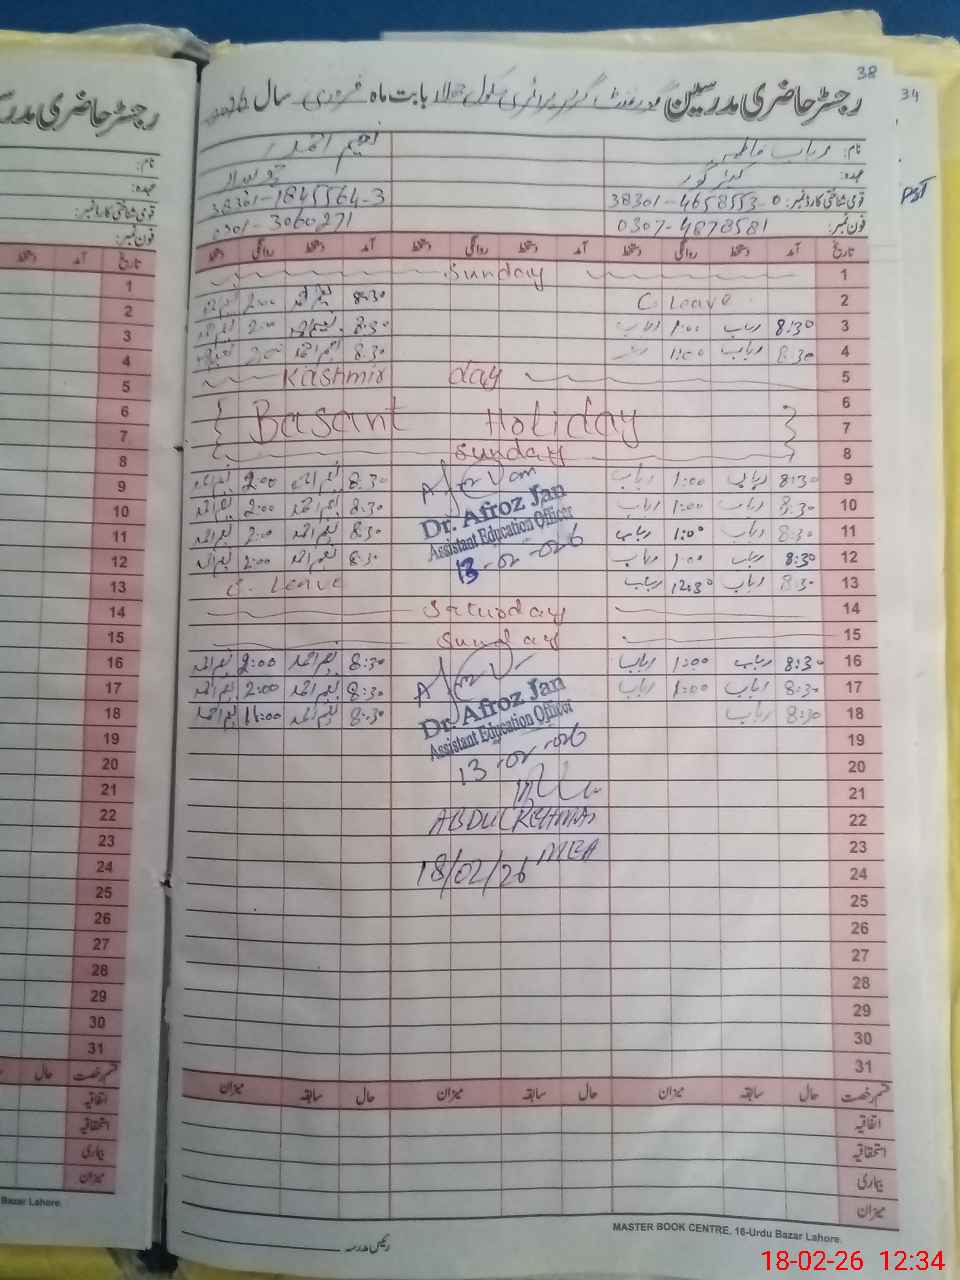 38
34
رجسٹر حاضری مدرسین گورنمنٹ گرلز پرائمری سکول بابت ماہ فروری سال 2026
نام: رباب فاطمہ نعیم احمد
عہدہ: کیئر گور چوکیدار
قومی شناختی کارڈ نمبر: 38301-4658553-0 38301-1845564-3
فون نمبر: 0307-4878581 0301-3060271
PST
تاریخ آمد دستخط روانگی دستخط آمد دستخط روانگی دستخط آمد دستخط روانگی دستخط
1 Sunday
2 C. Leave 8:30 نعیم احمد 2:00 نعیم احمد
3 8:30 رباب 1:00 رباب 8:30 نعیم احمد 2:00 نعیم احمد
4 8:30 رباب 1:00 رباب 8:30 نعیم احمد 2:00
5 Kashmir day
6
7 Basant Holiday
8 Sunday
9 8:30 رباب 1:00 رباب 8:30 نعیم احمد 2:00 نعیم احمد
10 8:30 رباب 1:00 رباب 8:30 نعیم احمد 2:00 نعیم احمد
11 8:30 رباب 1:00 رباب 8:30 نعیم احمد 2:00 نعیم احمد
12 8:30 رباب 1:00 رباب 8:30 نعیم احمد 2:00 نعیم احمد
13 8:30 رباب 12:30 رباب C. Leave
Dr. Afroz Jan
Assistant Education Officer
13-02-026
14 Saturday
15 Sunday
16 8:30 رباب 1:00 رباب 8:30 نعیم احمد 2:00 نعیم احمد
17 8:30 رباب 1:00 رباب 8:30 نعیم احمد 2:00 نعیم احمد
18 8:30 رباب 8:30 نعیم احمد 11:00 نعیم احمد
Dr. Afroz Jan
Assistant Education Officer
13-02-026
19
20
21
22 ABDUL REHMAN
23 MEA
24 18/02/26
25
26
27
28
29
30
31
قسم رخصت حال سابقہ میزان حال سابقہ میزان حال سابقہ میزان
اتفاقیہ
استحقاقیہ
بیماری
میزان
MASTER BOOK CENTRE, 16-Urdu Bazar Lahore.
رئیس مدرسہ
رجسٹر حاضری مدرسین
نام:
عہدہ:
قومی شناختی کارڈ نمبر:
فون نمبر:
تاریخ آمد دستخط
1
2
3
4
5
6
7
8
9
10
11
12
13
14
15
16
17
18
19
20
21
22
23
24
25
26
27
28
29
30
31
قسم رخصت حال
اتفاقیہ
استحقاقیہ
بیماری
میزان
Bazar Lahore.
18-02-26 12:34